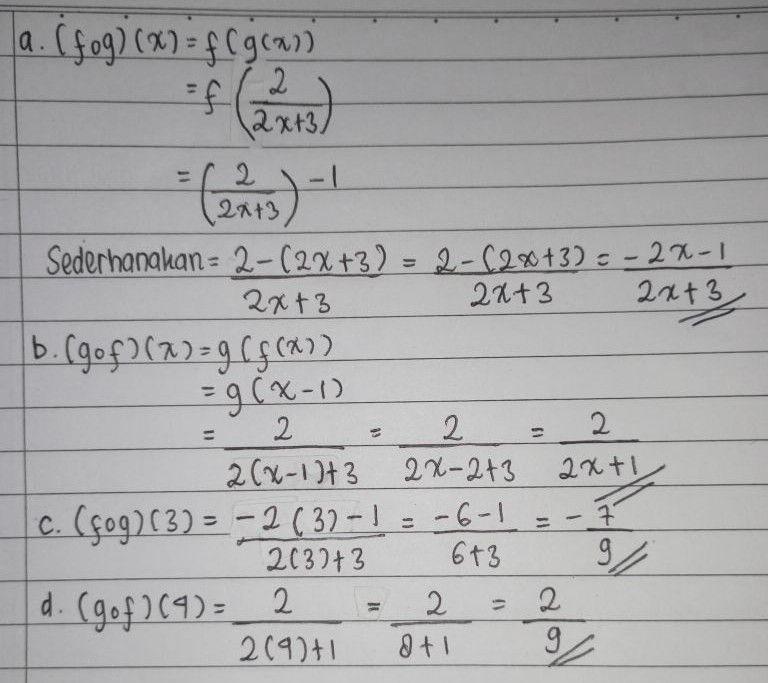 a. (fog)(x) = f(g(x))
= f (2/(2x+3))
= (2/(2x+3)) - 1
Sederhanakan = (2-(2x+3))/(2x+3) = (2-(2x+3))/(2x+3) = (-2x-1)/(2x+3)
b. (gof)(x) = g(f(x))
= g(x-1)
= 2/(2(x-1)+3) = 2/(2x-2+3) = 2/(2x+1)
c. (fog)(3) = (-2(3)-1)/(2(3)+3) = (-6-1)/(6+3) = -7/9
d. (gof)(4) = 2/(2(4)+1) = 2/(8+1) = 2/9